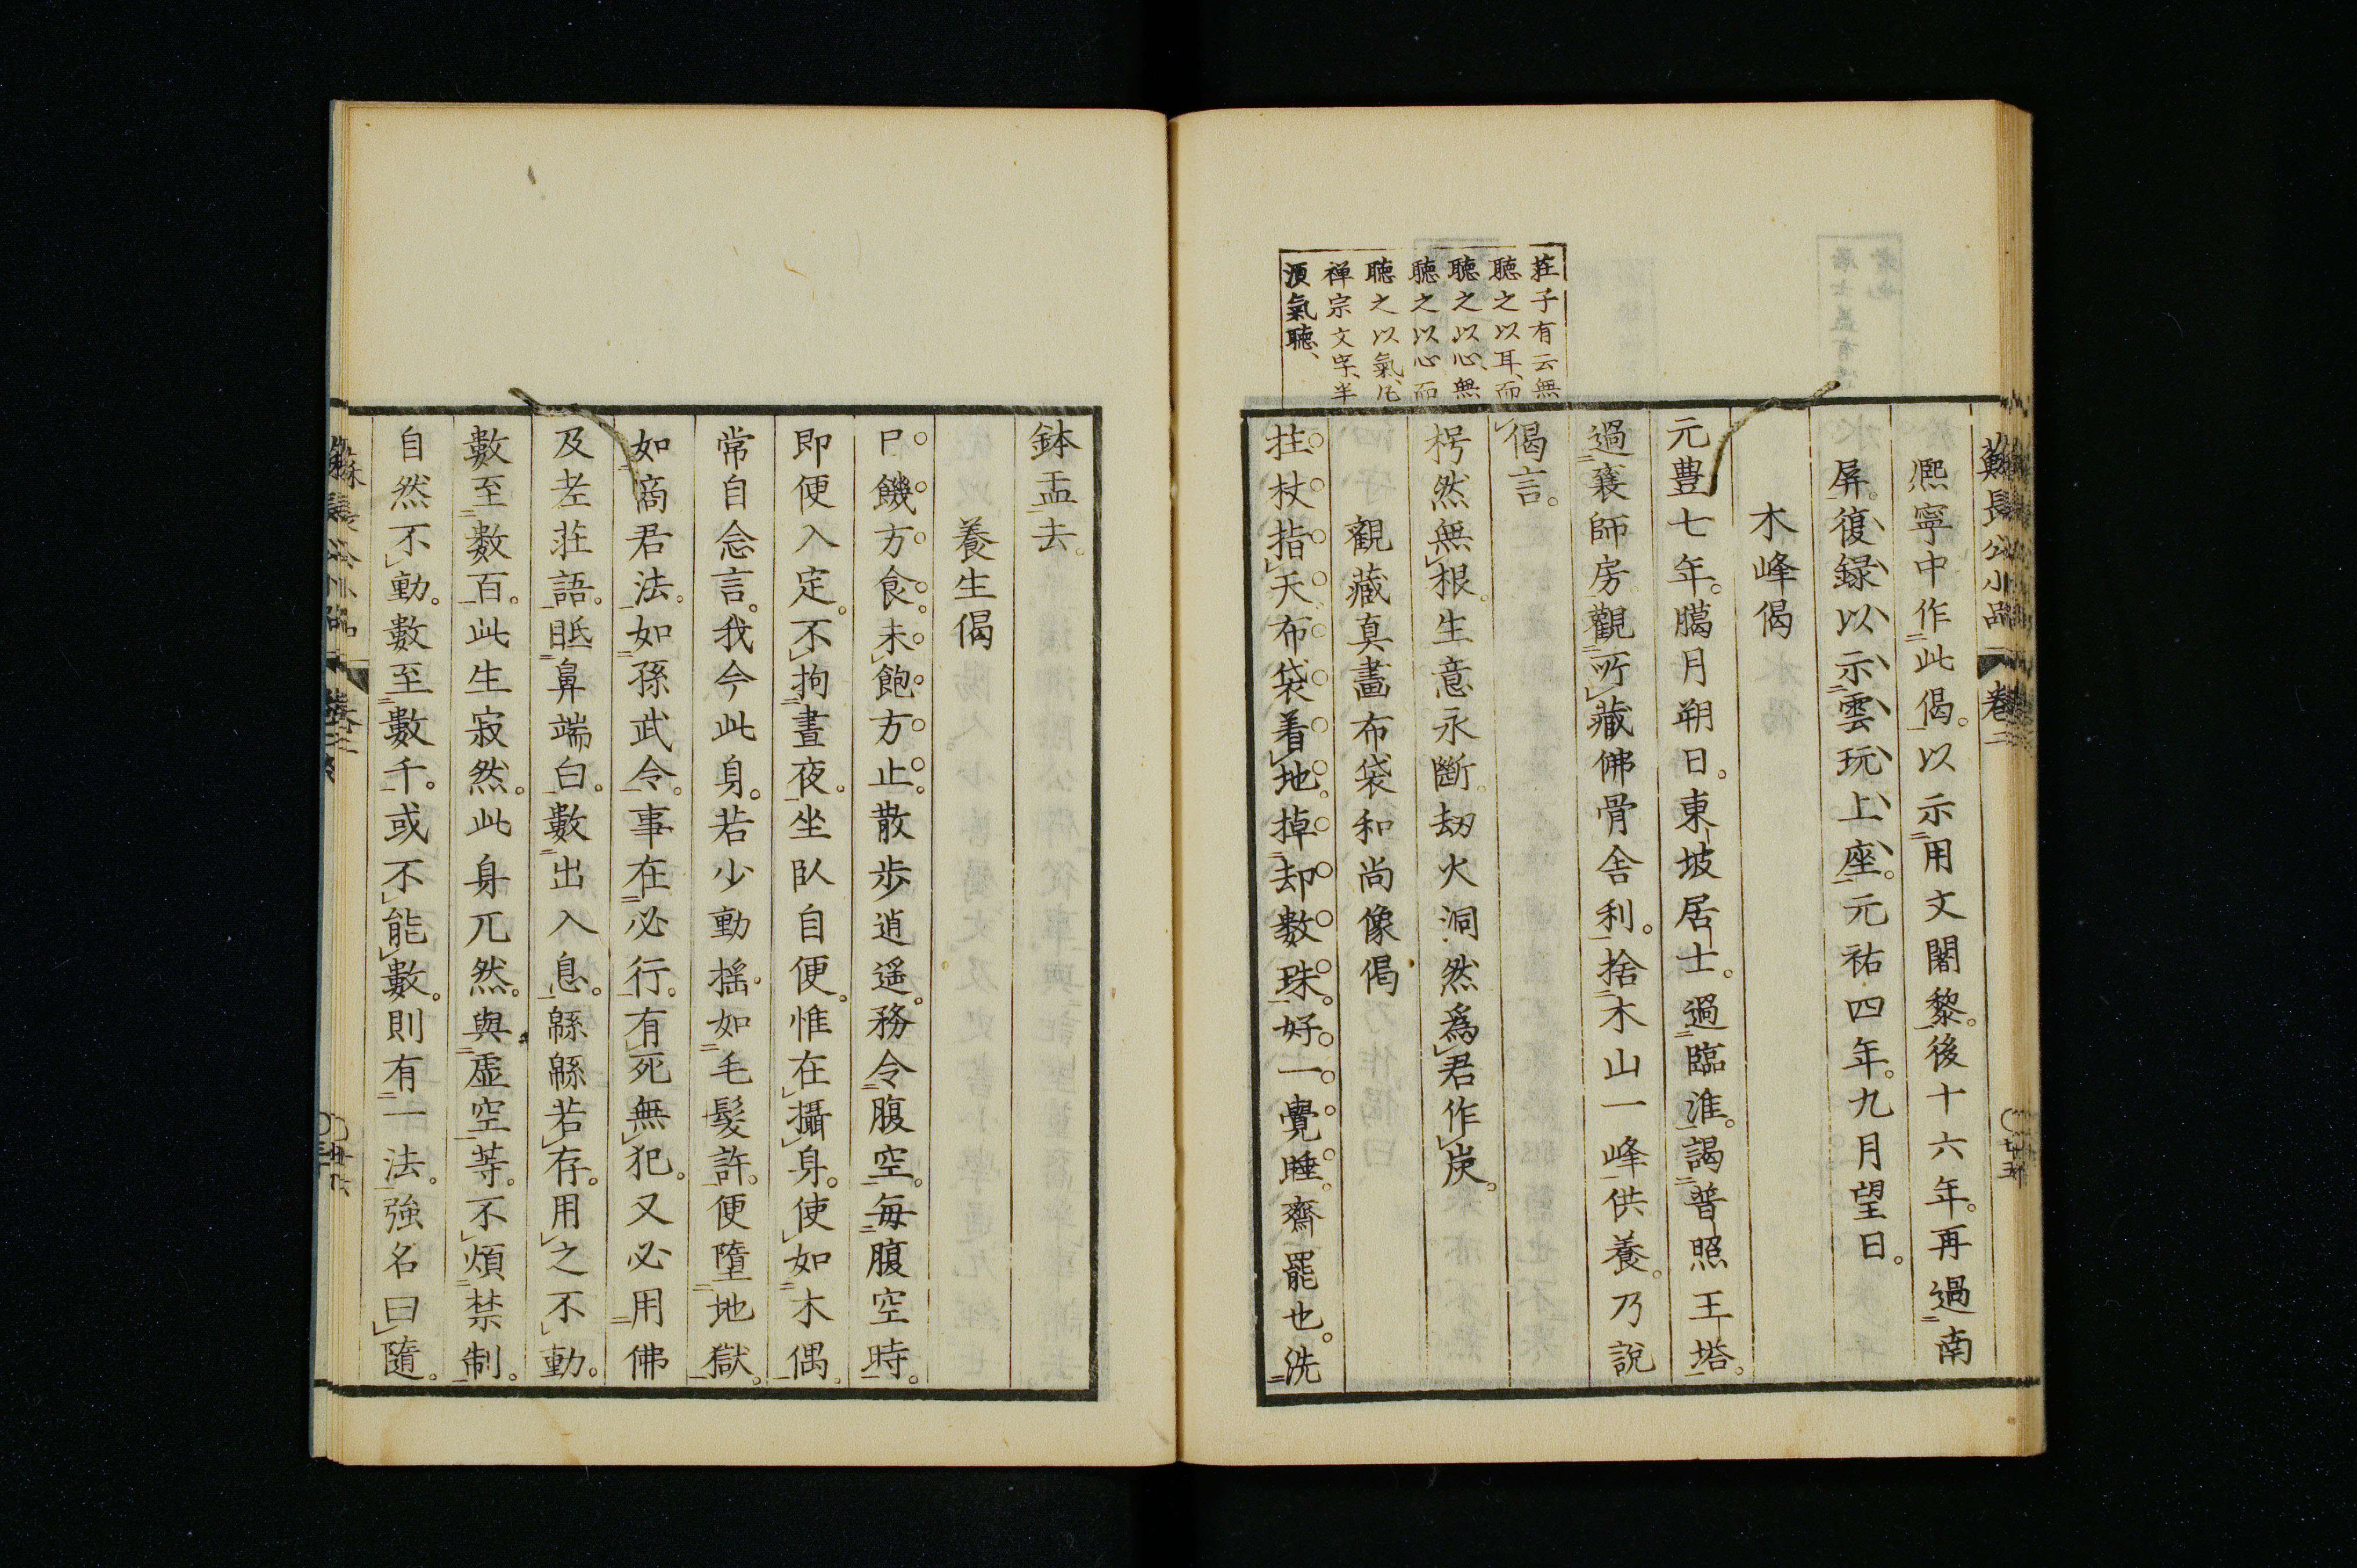 蘇長公小品 卷二
熈寧中作此偈。以示用文闍黎。後十六年。再過南
屏。復録以示雲玩上座。元祐四年。九月望日。
木峰偈
元豊七年。臈月朔日。東坡居士。過臨淮。謁普照王塔。
過襄師房。觀所藏佛骨舎利。捨木山一峰供養。乃說
偈言。
枵然無根。生意永斷。劫火洞然。爲君作炭。
觀藏真畫布袋和尚像偈
拄杖指天。布袋着地。掉却数珠。好一覺睡。齋罷也。洗
莊子有云無
聽之以耳、而
聽之以心、無
聽之以心而
聽之以氣、凡
禅宗文字、半
須氣聽、
鉢盂去。
養生偈
已饑方食。未飽方止。散步逍遥。務令腹空。每腹空時。
即便入定。不拘晝夜。坐臥自便。惟在攝身。使如木偶。
常自念言。我今此身。若少動揺。如毛髮許。便墮地獄。
如商君法。如孫武令。事在必行。有死無犯。又必用佛
及老莊語。眡鼻端白。數出入息。緜緜若存。用之不動。
數至數百。此生寂然。此身兀然。與虛空等。不煩禁制。
自然不動。數至數千。或不能數。則有一法。強名曰隨。